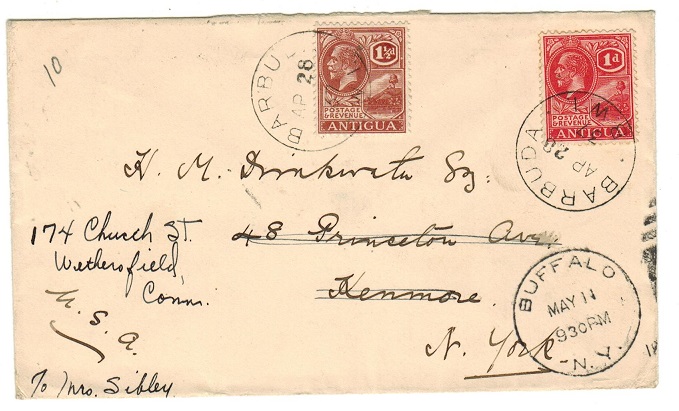 10
BARBUDA
AP 28
1½d
POSTAGE
& REVENUE
ANTIGUA
1d
POSTAGE
& REVENUE
ANTIGUA
BARBUDA
W.I.
AP
28
H. M. Drinkwater Esq:
48 Princeton Ave
Kenmore.
N. York
174 Church St.
Wethersfield,
Conn.
U. S. A.
To Mrs. Sibley
BUFFALO
MAY 11
930PM
N.Y.